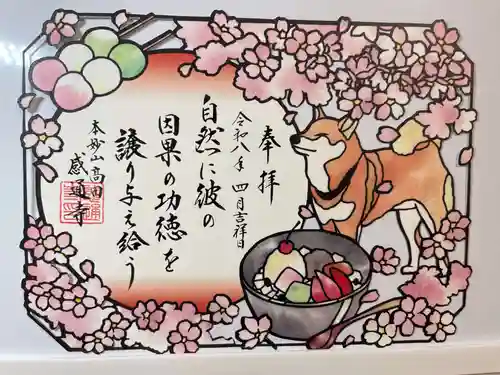 奉拝
令和八年 四月吉祥日
自然に彼の
因果の功徳を
譲り与え給う
本妙山 高田
感通寺